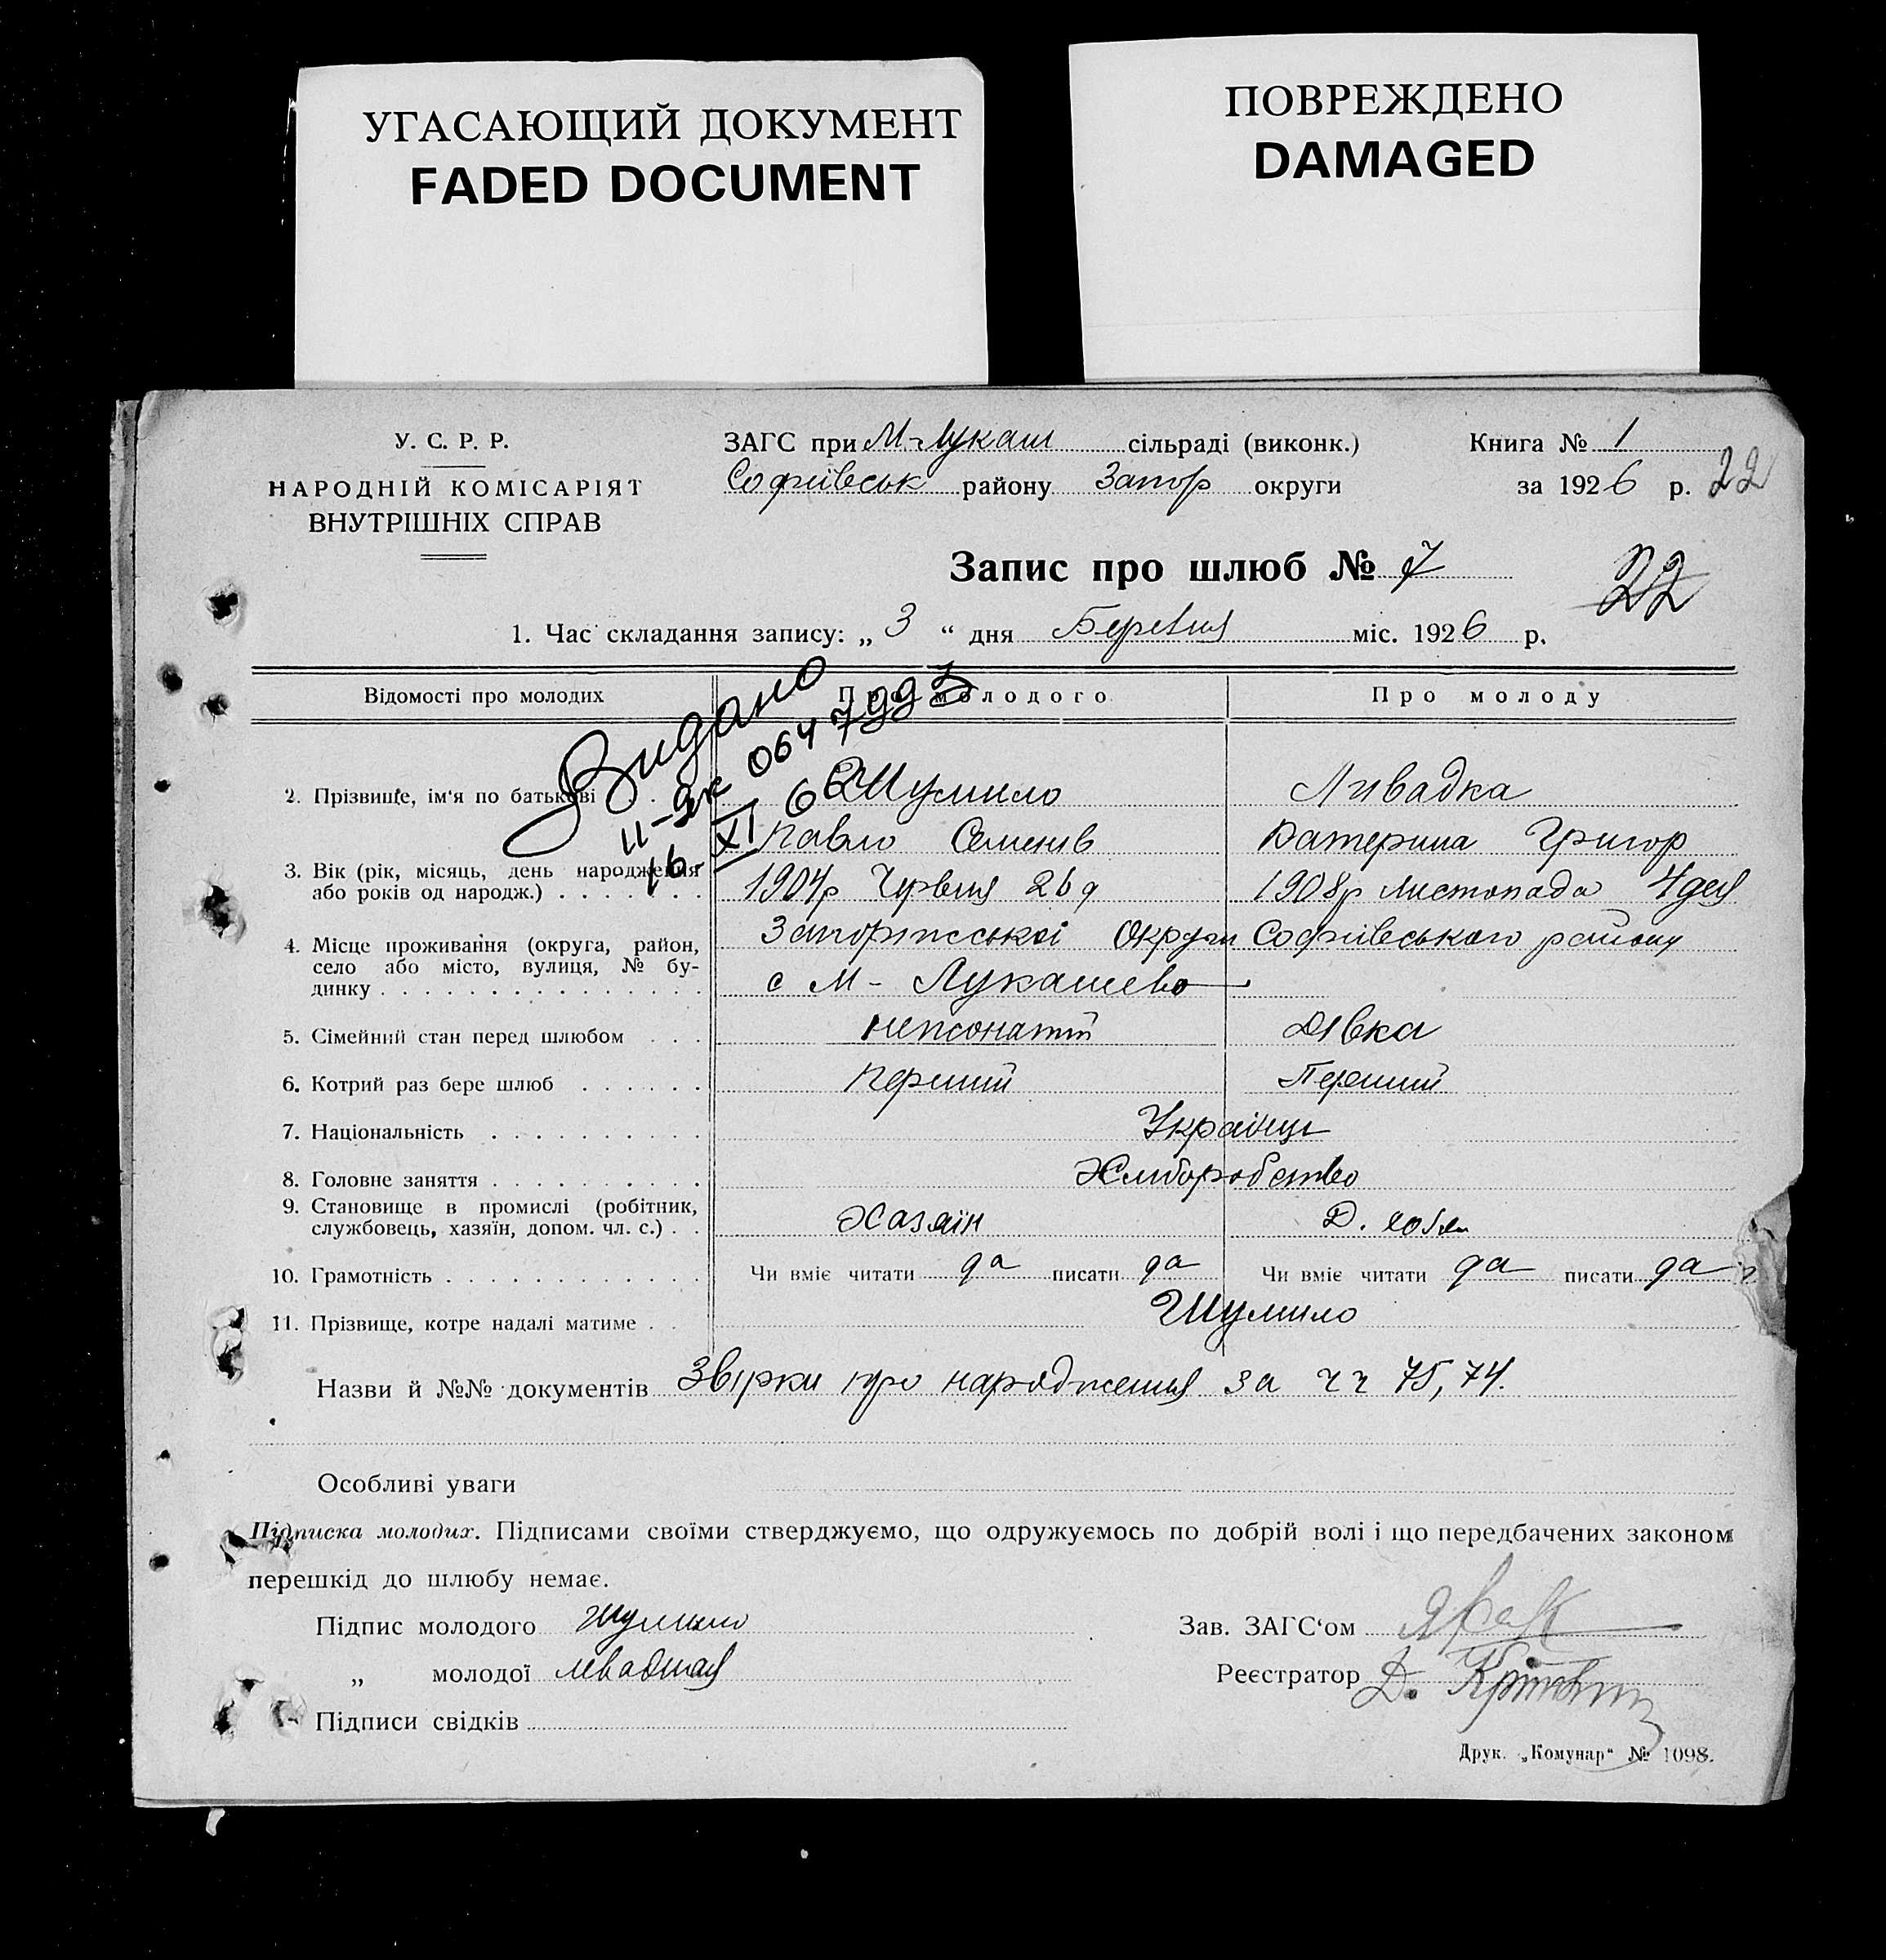 УГАСАЮЩИЙ ДОКУМЕНТ
FADED DOCUMENT
ПОВРЕЖДЕНО
DAMAGED
У. С. Р. Р.
НАРОДНІЙ КОМІСАРІЯТ
ВНУТРІШНІХ СПРАВ
ЗАГС при М-Лукаш сільраді (виконк.)
Софіївськ району Запор округи
Книга № 1
за 1926 р. 22
Запис про шлюб № 7
22
1. Час складання запису: „ 3 “ дня Березня міс. 1926 р.
Відомості про молодих
Про молодого
Про молоду
Видано
II-ЯК 0647993
16-XI 62
2. Прізвище, ім‘я по батькові
Шумило
Ливадка
Павло Семенів
Катерина Григор
3. Вік (рік, місяць, день народження
або років од народж.)
1904р Червня 26 д
1908р Листопада 4 дня
4. Місце проживання (округа, район,
село або місто, вулиця, № бу-
динку
Запоріжської Округи Софіївського району
с М - Лукашево
5. Сімейний стан перед шлюбом
нежонатий
Дівка
6. Котрий раз бере шлюб
Перший
Перший
7. Національність
Українці
8. Головне заняття
Хліборобство
9. Становище в промислі (робітник,
службовець, хазяїн, допом. чл. с.)
Хазяїн
Д.
10. Грамотність
Чи вміє читати да писати да
Чи вміє читати да писати да
11. Прізвище, котре надалі матиме
Шумило
Назви й №№ документів Звірки про народження за чч 75, 74.
Особливі уваги
Підписка молодих. Підписами своїми стверджуємо, що одружуємось по добрій волі і що передбачених законом
перешкід до шлюбу немає.
Підпис молодого Шумило
„ молодої
Підписи свідків
Зав. ЗАГС‘ом
Реєстратор Д.
Друк. „Комунар“ № 1098.